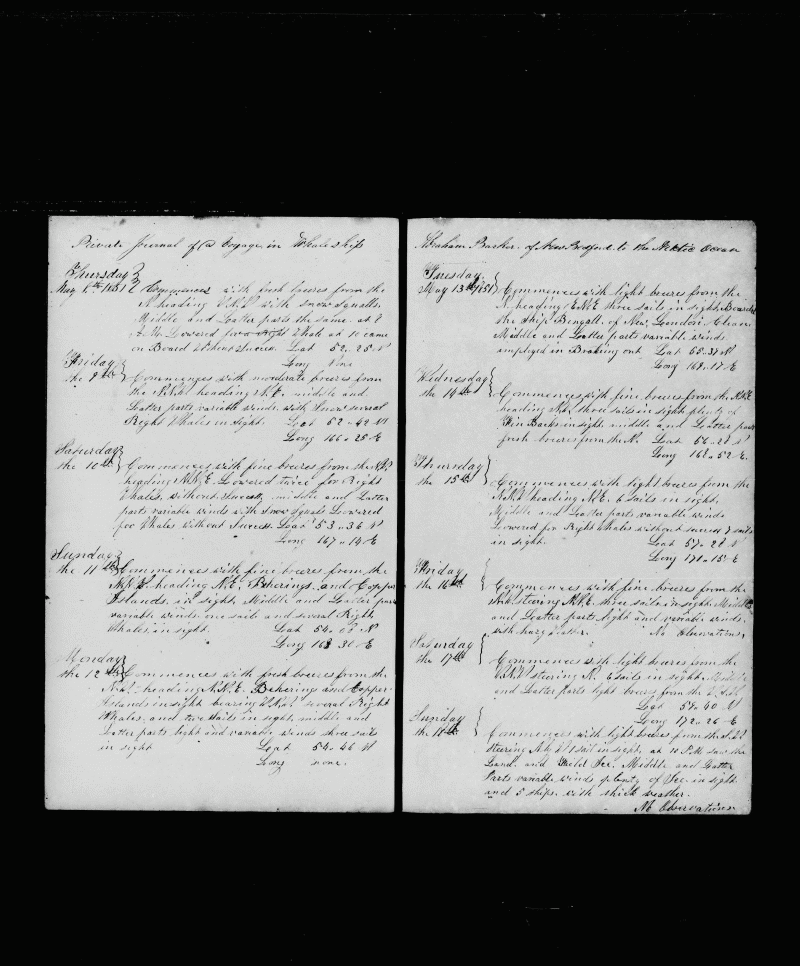 Private Journal of a Voyage in Whale ship
Thursday
May 8th 1851 Commences with fresh breeses from the
N heading W.N.W with snow squalls
Middle and Latter parts the same. at 8
A.M. Lowered for a Right Whale at 10 came
on Board without success. Lat 52.25 N
Long None
Friday
the 9th Commences with moderate breeses from
the heading N.E. middle and
Latter parts variable winds with Snow several
Right Whales in sight. Lat 52.42 N
Long 166.25 E
Saturday
the 10th Commences with fine breeses from the
heading N.N.E. Lowered twice for Right
Whales, without success, middle and Latter
parts variable winds with snow squals Lowered
for Whales without Success. Lat 53.36 N
Long 167.14 E
Sunday
the 11th Commences with fine breeses from the
heading N.E. Beherings and Copper
Islands in sight. Middle and Latter parts
variable winds one sail and several Right
Whales in sight. Lat 54.
Long 168 E
Monday
the 12th Commences with fresh breeses from the
heading N.N.E. Beherings and Copper
Islands in sight bearing several Right
Whales, and two sails in sight, middle and
Latter parts light and variable winds three sails
in sight Lat 54.46 N
Long none.
Abraham Barker of New Bedford to the Arctic Ocean
Tuesday
May 13th 1851 Commences with light breeses from the
N. heading E.N.E three sails in sight. Boarded
the ship Bengall of New London Clean
Middle and Latter parts variable winds
employed in Breaking out Lat 55.38 N
Long 168.17 E
Wednesday
the 14th Commences with fine breeses from the
heading three sails in sight plenty of
Fin Backs in sight middle and Latter parts
fresh breeses from the N. Lat 56.28 N
Long 168.52 E
Thursday
the 15th Commences with light breeses from the
heading N.E. 6 sails in sight.
Middle and Latter parts variable winds
Lowered for Right Whales without success 7 sails
in sight. Lat 57.28 N
Long 170.15 E
Friday
the 16th Commences with fine breeses from the
steering N.N.E three sails in sight. Middle
and Latter parts light and variable winds,
with hazy weather. No Observations,
Saturday
the 17th Commences with light breeses from the
steering N. 6 sails in sight, Middle
and Latter parts light breeses from the
Lat 59.40 N
Long 172.26 E
Sunday
the 18th Commences with light breeses from the
steering 1 sail in sight, at 10 P.M. saw the
Land. and Field Ice. Middle and Latter
Parts variable winds plenty of Ice in sight
and 5 ships. with thick weather.
No Observations